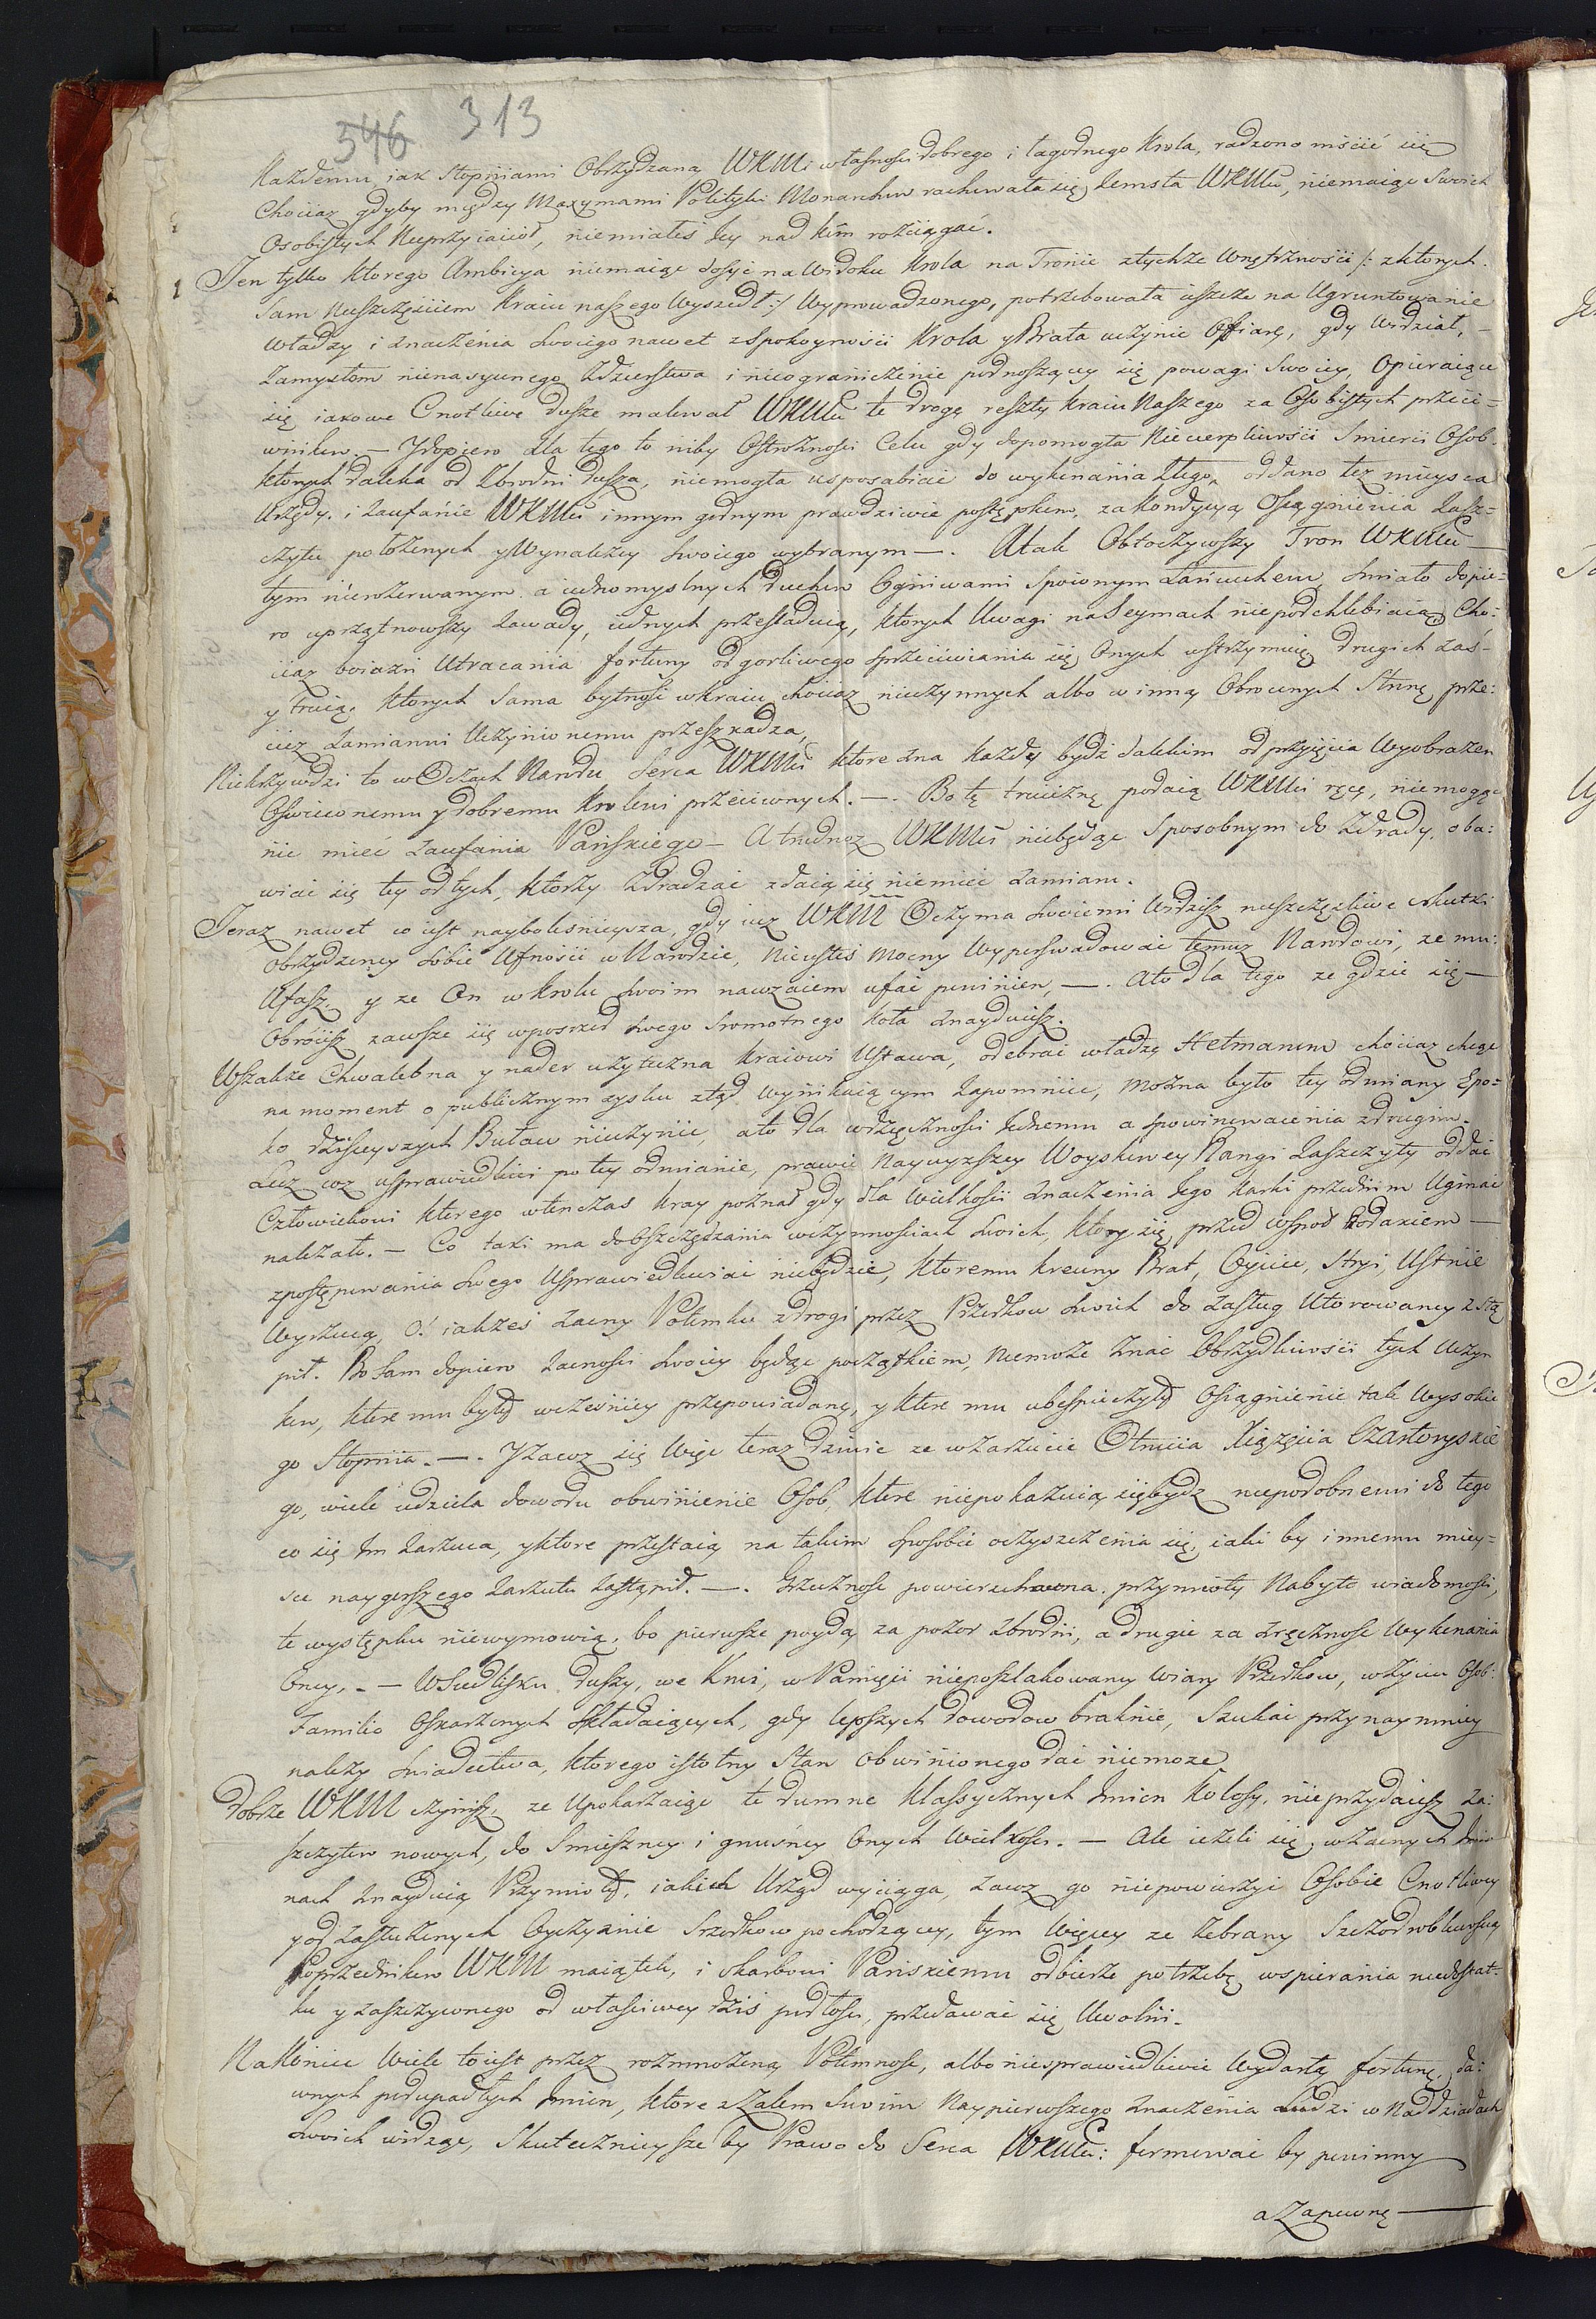 546 313
Każdemu iak Stopniami Obrzydzana WKMci własność dobrego i łagodnego Krola, radzono mścić się
Chociaz gdyby między Maxymami Polityki Monarchow rachowała się Zemsta WKMć, niemaiąc Swoich
Osobistych Nieprzyiacioł, niemiałeś Iey nad kim rozciągać.
Ten tylko ktorego Ambicya niemaiąc dosyć na Widoku Krola na Tronie ztychże Wnętrzności /: zktorych
Sam Nieszczęściem Kraiu naszego Wyszedł :/ Wyprowadzonego, potrzebowała ieszcze na Ugruntowanie
Władzy i znaczenia Swoiego nawet zspokoyności Krola y Brata uczynić Ofiarę, gdy Widział, –
Zamysłom nienasyconego Zdzierstwa i nieograniczenie podnoszącey się powagi Swoiey, Opieraiące
się iakowe Cnotliwe dusze malował WKMci te drogę reszty kraiu Naszego za Osobistych przeci=
wnikow. — Y dopiero dla tego to niby Ostrożności Celu gdy dopomogła Niecierpliwości Smierć Osob
ktorych daleka od Zbrodni dusza, niemogła usposabiać do wykonania Złego, oddano też mieysca
Urzędy i Zaufanie WKMci innym godnym prawdziwie postępkiem, za kondycyą Osiągnienia Zasz=
czytu położonych y Wynalezcy Swoiego wybranym —. A tak Obtoczywszy Tron WKMci —
tym nierozerwanym a iednomyslnych Duchow Ogniwami Spoionym Łańcuchem, Smiało dopie=
ro uprzątnowszy zawady, iednych przesladuią, ktorych Uwagi na Seymach niepodchlebiaią Cho=
ciaz boiaźń Utracania fortuny od gorliwego Sprzeciwiania się Onych wstrzymuię Drugich zaś –
y Trucią ktorych Sama bytność wkraiu, chociaz nieczynnych albo w inną Obroconych Stronę, prze=
ciez Zamianni Uczynionemu przeszkadza,
Niekrzywdzi to w Oczach Narodu Serca WKMci ktore zna każdy bydź dalekim od przyięcia Wyobrażeń
Oswieconemu y dobremu Krolowi przeciwnych. —. Bo tę truciznę podaią WKMci ręcę, niemogące
nie mieć Zaufania Pańskiego – A trudnoz WKMci niebędąc Sposobnym do Zdrady, oba=
wiać się tey od tych, ktorzy Zdradzać zdaią się niemieć zamiaru.
Teraz nawet co iest nayboleśnieysza, gdy iuz WKM Oczyma Swoiemi Widzisz nieszczęśliwe Skutki
Obrzydzoney Sobie Ufności w Narodzie, Nieiesteś mocny Wyperswadować temuz Narodowi, ze mu
Ufasz y ze On w Krolu Swoim nawzaiem ufać powinien, —. Ato dla tego ze gdzie się —
Obrócisz zawsze się wposrzod Swego Sromotnego koła znayduiesz.
Wszakże Chwalebna y nader użyteczna kraiowi Ustawa, odebrać władzę Hetmanom chociaz chcąc
na moment o publicznym zysku ztąd Wynikaiącym Zapomnieć, można było tey odmiany Epo=
ko dzisieyszych Buław nieczynić, ato dla wdzięczności Iednemu a Spowinowacenia zdrugim.
Lecz coz usprawiedliwi po tey odmianie, prawie Naywyższey Woyskowey Rangi Zaszczyty oddać
Człowiekowi ktorego wtenczas kray poznał gdy dla Wielkości znaczenia Iego karki przednim Uginać
należało. — Co taki ma do oszczędzania wczynnościach Swoich, ktory się przed wspoł Rodakiem —
zpostępowania Swego Usprawiedliwiać niebędzie, ktoremu krewny Brat, Oyciec, Stryi, Ustnie
Wyrzucą, O! iakżeś zacny Potomku zdrogi przez Przodkow Swoich do zasług Utorowaney zstą
pił. Bo Sam dopiero Zacności Swoiey będąc początkiem, Niemoże znać Obrzydliwości tych Uczyn
kow, ktore mu były wcześniey przepowiadane, y ktore mu ubespieczyły Osiągnienie tak Wysokie
go Stopnia. —. Y zacoz się Więc teraz dziwić ze wZarzucie Otrucia Xiążęcia Czartoryskie
go, wiele udziela dowodu obwinienie Osob, ktore niepokazuią się bydz niepodobnemi do tego
co się Im Zarzuca, y ktore przestaią na takim Sposobie oczyszczenia się, iaki by innemu miey=
sce naygorszego Zarzutu Zastąpił. —. Grzeczność powierzchowna, przymioty Nabyte wiadomości,
te występku niewymowią, bo pierwsze poydą za pozor Zbrodni, a drugie za zręczność Wykonania
Oney. – — W Siedlisku Duszy, we Krwi, w Pamięci nieposzlakowaney Wiary Przodkow, wżyciu Osob
Familio Oskarżonych Składaiących, gdy lepszych Dowodow braknie, Szukać przynaymniey
należy Swiadectwa, ktorego istotny Stan obwinionego dać niemoze,
Dobrze WKM czynisz, ze Upokarzaiąc te dumne klassycznych Imion Kolosy, nieprzydaiesz Za=
szczytow nowych, do Smieszney i gnusney Onych Wielkości. — Ale ieżeli się wZacnych Imio
nach Znayduią Przymioty, iakich Urząd wyciąga, Zacoz go niepowierzyć Osobie Cnotliwey
y od zasłużonych Oyczyznie Srzodkow pochodzącey, tym Więcey ze Zebrany Szczodrobliwością
Poprzednikow WKM maiątek, i Skarbowi Pańskiemu odbierze potrzebę wspierania niedostat=
ku y zaszczyconego od właściwey dziś podłości, przedawać się Uwolni.
Na Koniec Wiele to iest przez rozmnożoną Potomność, albo niesprawiedliwie Wydartą fortunę, da=
wnych podupadłych Imion, ktore z Żalem Swoim Naypierwszego znaczenia Ludzi w Naddziadach
Swoich widząc, Skutecznieysze by Prawo do Serca WKMci: formować by powinny
a Zapewne —